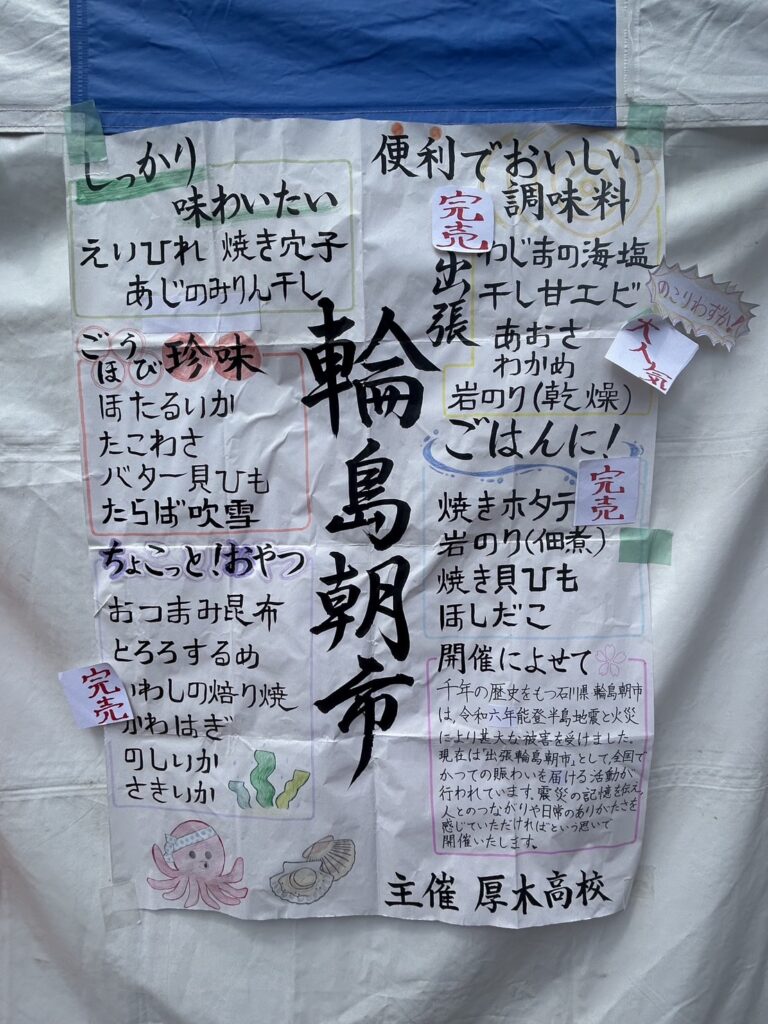 出張
輪島朝市
しっかり
味わいたい
えいひれ 焼き穴子
あじのみりん干し
ごうび
ほび
珍味
ほたるいか
たこわさ
バター貝ひも
たらば吹雪
ちょこっと!おやつ
おつまみ昆布
とろろするめ
いわしの焙り焼
かわはぎ
のしいか
さきいか
完売
便利でおいしい
調味料
完売
わじまの海塩
干し甘エビ
のこりわずか!
大人気
あおさ
わかめ
岩のり(乾燥)
ごはんに!
完売
焼きホタテ
岩のり(佃煮)
焼き貝ひも
ほしだこ
開催によせて
千年の歴史をもつ石川県輪島朝市
は、令和六年能登半島地震と火災
により甚大な被害を受けました。
現在は"出張輪島朝市"として、全国で
かつての賑わいを届ける活動が
行われています。震災の記憶を伝え、
人とのつながりや日常のありがたさを
感じていただければという思いで
開催いたします。
主催 厚木高校